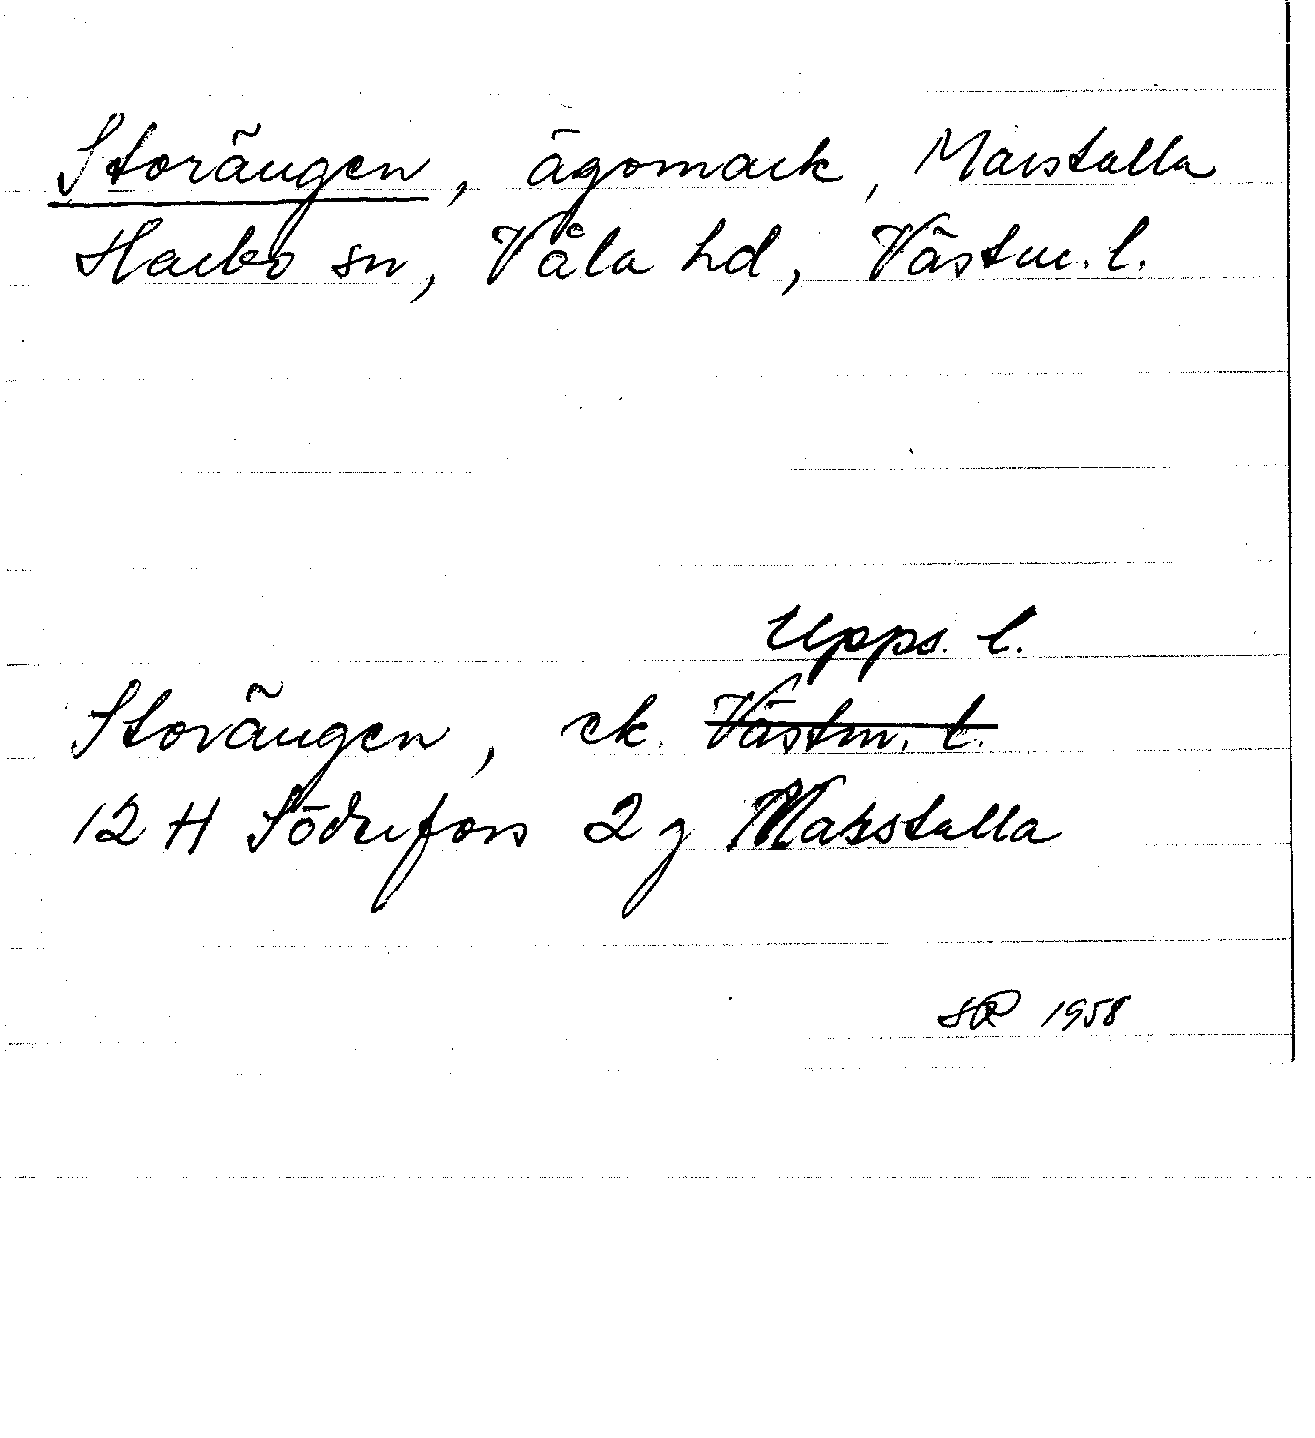 Storängen, ägomark, Marstalla
Harbo sn, Våla hd, Västm. l.
Upps. l.
Storängen, ek. Västm. l.
12 H Söderfors 2 g Marstalla
SR 1958